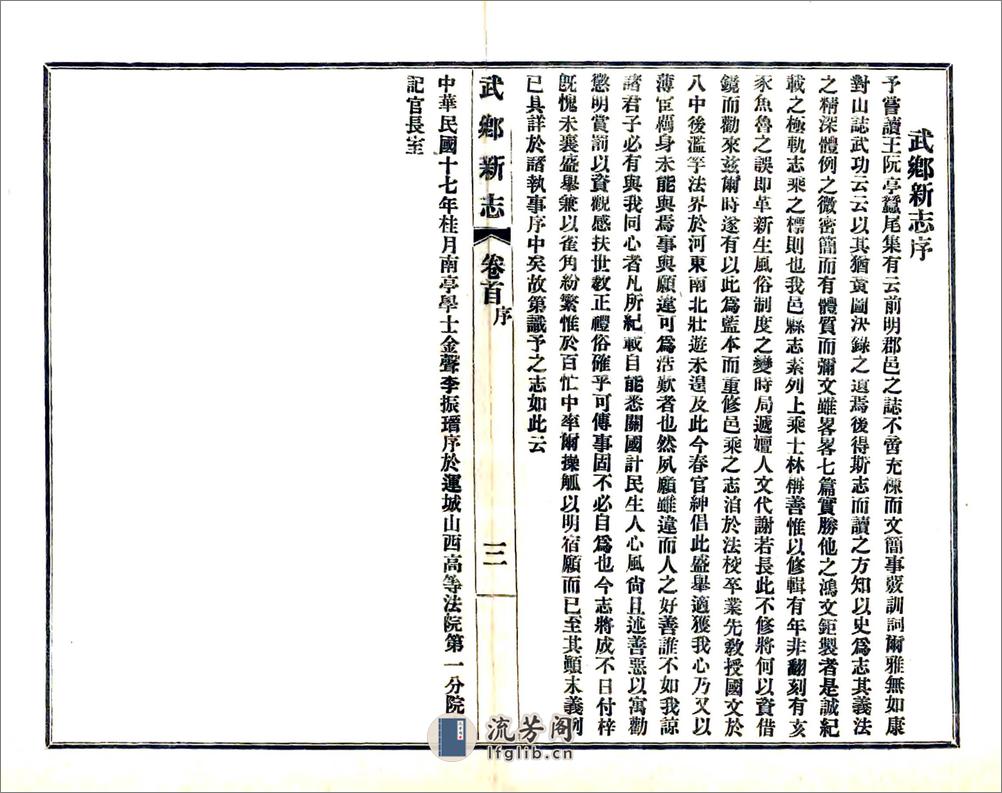 武鄉新志序
予嘗讀王阮亭蠶尾集有云前明郡邑之誌不啻充棟而文簡事覈訓詞爾雅無如康
對山誌武功云云以其猶黃圖決錄之遺焉後得斯志而讀之方知以史爲志其義法
之精深體例之微密簡而有體質而彌文雖畧畧七篇實勝他之鴻文鉅製者是誠紀
載之極軌志乘之標則也我邑縣志素列上乘士林稱善惟以修輯有年非翻刻有亥
豕魚魯之誤即革新生風俗制度之變時局遞嬗人文代謝若長此不修將何以資借
鏡而勸來茲爾時遂有以此爲藍本而重修邑乘之志洎於法校卒業先敎授國文於
八中後濫竽法界於河東南北壯遊未遑及此今春官紳倡此盛舉適獲我心乃又以
薄宦羈身未能與焉事與願違可爲浩歎者也然夙願雖違而人之好善誰不如我諒
諸君子必有與我同心者凡所紀載自能悉關國計民生人心風尙且述善惡以寓勸
懲明賞罰以資觀感扶世敎正禮俗確乎可傳事固不必自爲也今志將成不日付梓
旣愧未襄盛舉兼以雀角紛繁惟於百忙中率爾操觚以明宿願而已至其顚末義例
已具詳於諸執事序中矣故第識予之志如此云
武鄉新志
卷首
序
三
中華民國十七年桂月南亭學士金聲李振瑨序於運城山西高等法院第一分院
記官長室
流芳阁
lfglib.cn